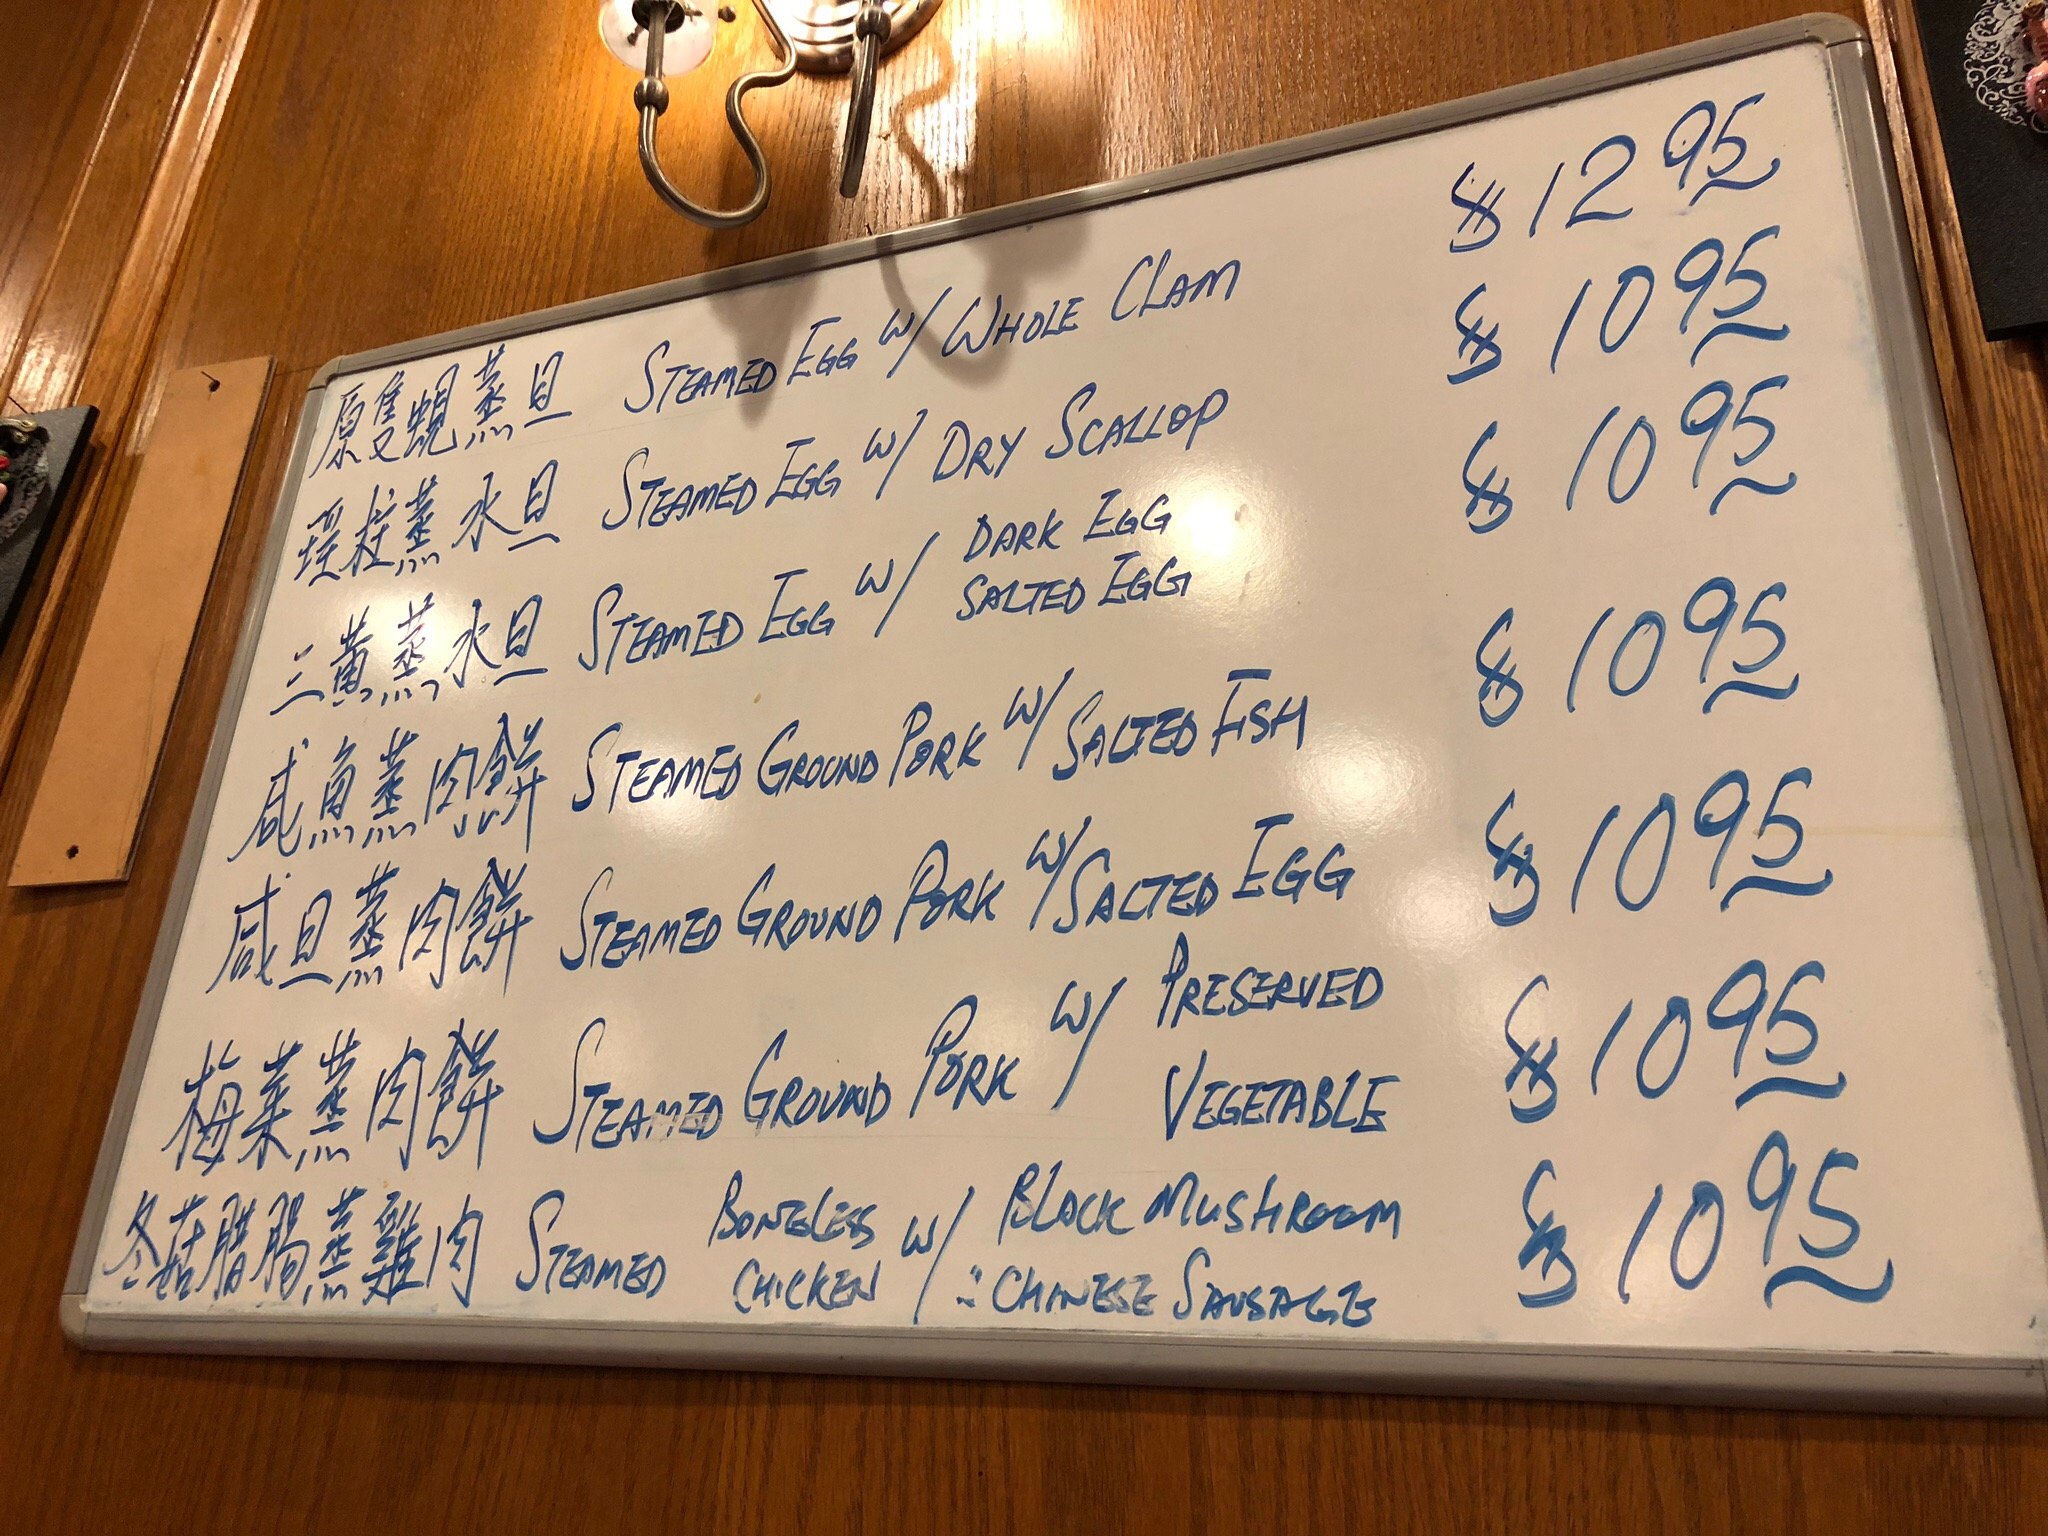 原隻蜆蒸旦 STEAMED EGG W/ WHOLE CLAM $12.95
瑤柱蒸水旦 STEAMED EGG W/ DRY SCALLOP $10.95
三黄蒸水旦 STEAMED EGG W/ DARK EGG $10.95
SALTED EGG
咸魚蒸肉餅 STEAMED GROUND PORK W/ SALTED FISH $10.95
咸旦蒸肉餅 STEAMED GROUND PORK W/ SALTED EGG $10.95
梅菜蒸肉餅 STEAMED GROUND PORK W/ PRESERVED $10.95
VEGETABLE
冬菇腊腸蒸雞肉 STEAMED BONELESS W/ BLACK MUSHROOM $10.95
CHICKEN CHINESE SAUSAGE